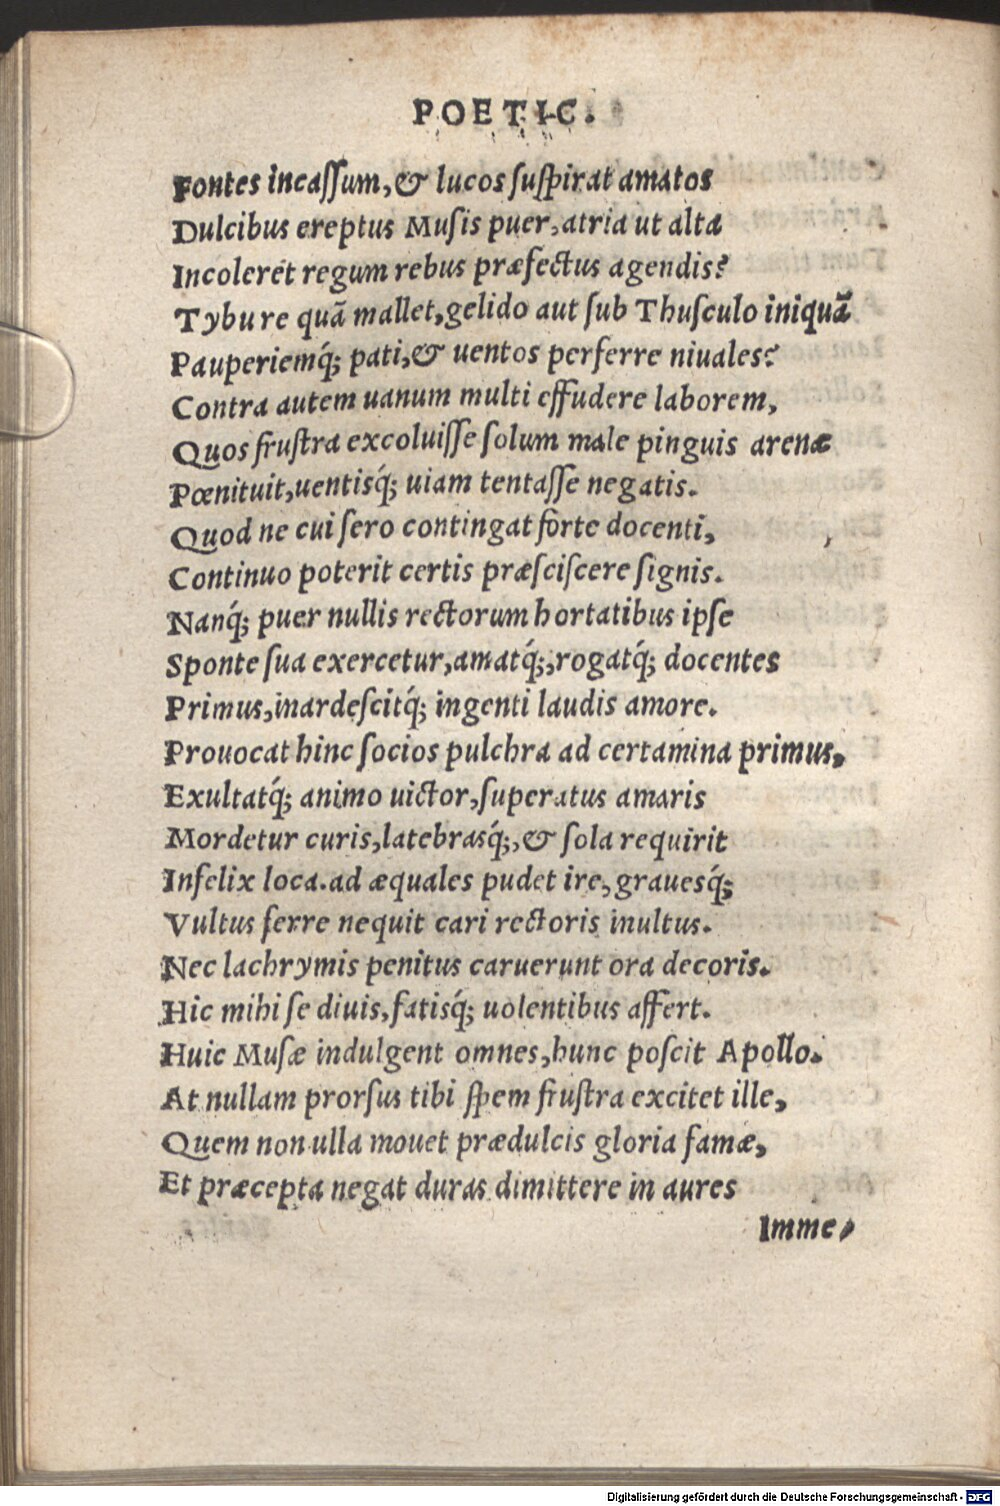 POETIC.
Fontes incaſſum, & lucos ſuſpirat amatos
Dulcibus ereptus Muſis puer, atria ut alta
Incoleret regum rebus præfectus agendis?
Tybure quã mallet, gelido aut ſub Thuſculo iniquã
Pauperiemq́; pati, & uentos perferre niuales?
Contra autem uanum multi effudere laborem,
Quos fruſtra excoluiſſe ſolum male pinguis arenæ
Pœnituit, uentisq́; uiam tentaſſe negatis.
Quod ne cui ſero contingat forte docenti,
Continuo poterit certis præſciſcere ſignis.
Nanq́; puer nullis rectorum hortatibus ipſe
Sponte ſua exercetur, amatq́;, rogatq́; docentes
Primus, inardeſcitq́; ingenti laudis amore.
Prouocat hinc ſocios pulchra ad certamina primus,
Exultatq́; animo uictor, ſuperatus amaris
Mordetur curis, latebrasq́;, & ſola requirit
Infelix loca. ad æquales pudet ire, grauesq́;
Vultus ferre nequit cari rectoris inultus.
Nec lachrymis penitus caruerunt ora decoris.
Hic mihi ſe diuis, fatisq́; uolentibus affert.
Huic Muſæ indulgent omnes, hunc poſcit Apollo.
At nullam prorſus tibi ſpem fruſtra excitet ille,
Quem non ulla mouet prædulcis gloria famæ,
Et præcepta negat duras dimittere in aures
Imme⸗
Digitalisierung gefördert durch die Deutsche Forschungsgemeinschaft - DFG